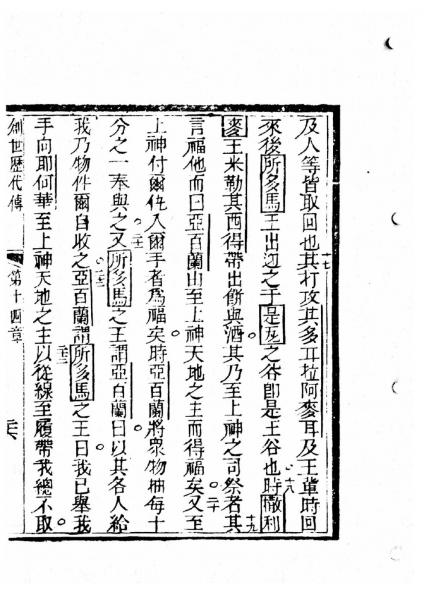 及人等皆取回也其打攻其多耳拉阿麥耳及王輩時回
十七
來後所多馬王出迎之于是瓦之谷卽是王谷也時撒利
十八
麥王米勒其西得帶出餅與酒其乃至上神之司祭者其
十九
言福他而曰亞百蘭由至上神天地之主而得福矣又至
二十
上神付爾仇入爾手者為福矣時亞百蘭將衆物抽每十
二十一
分之一奉與之又所多馬之王謂亞百蘭曰以其各人給
二十二
我乃物件爾自收之亞百蘭謂所多馬之王曰我已舉我
二十三
手向耶何華至上神天地之主以從線至履帶我總不取
創世歷代傳
第十四章